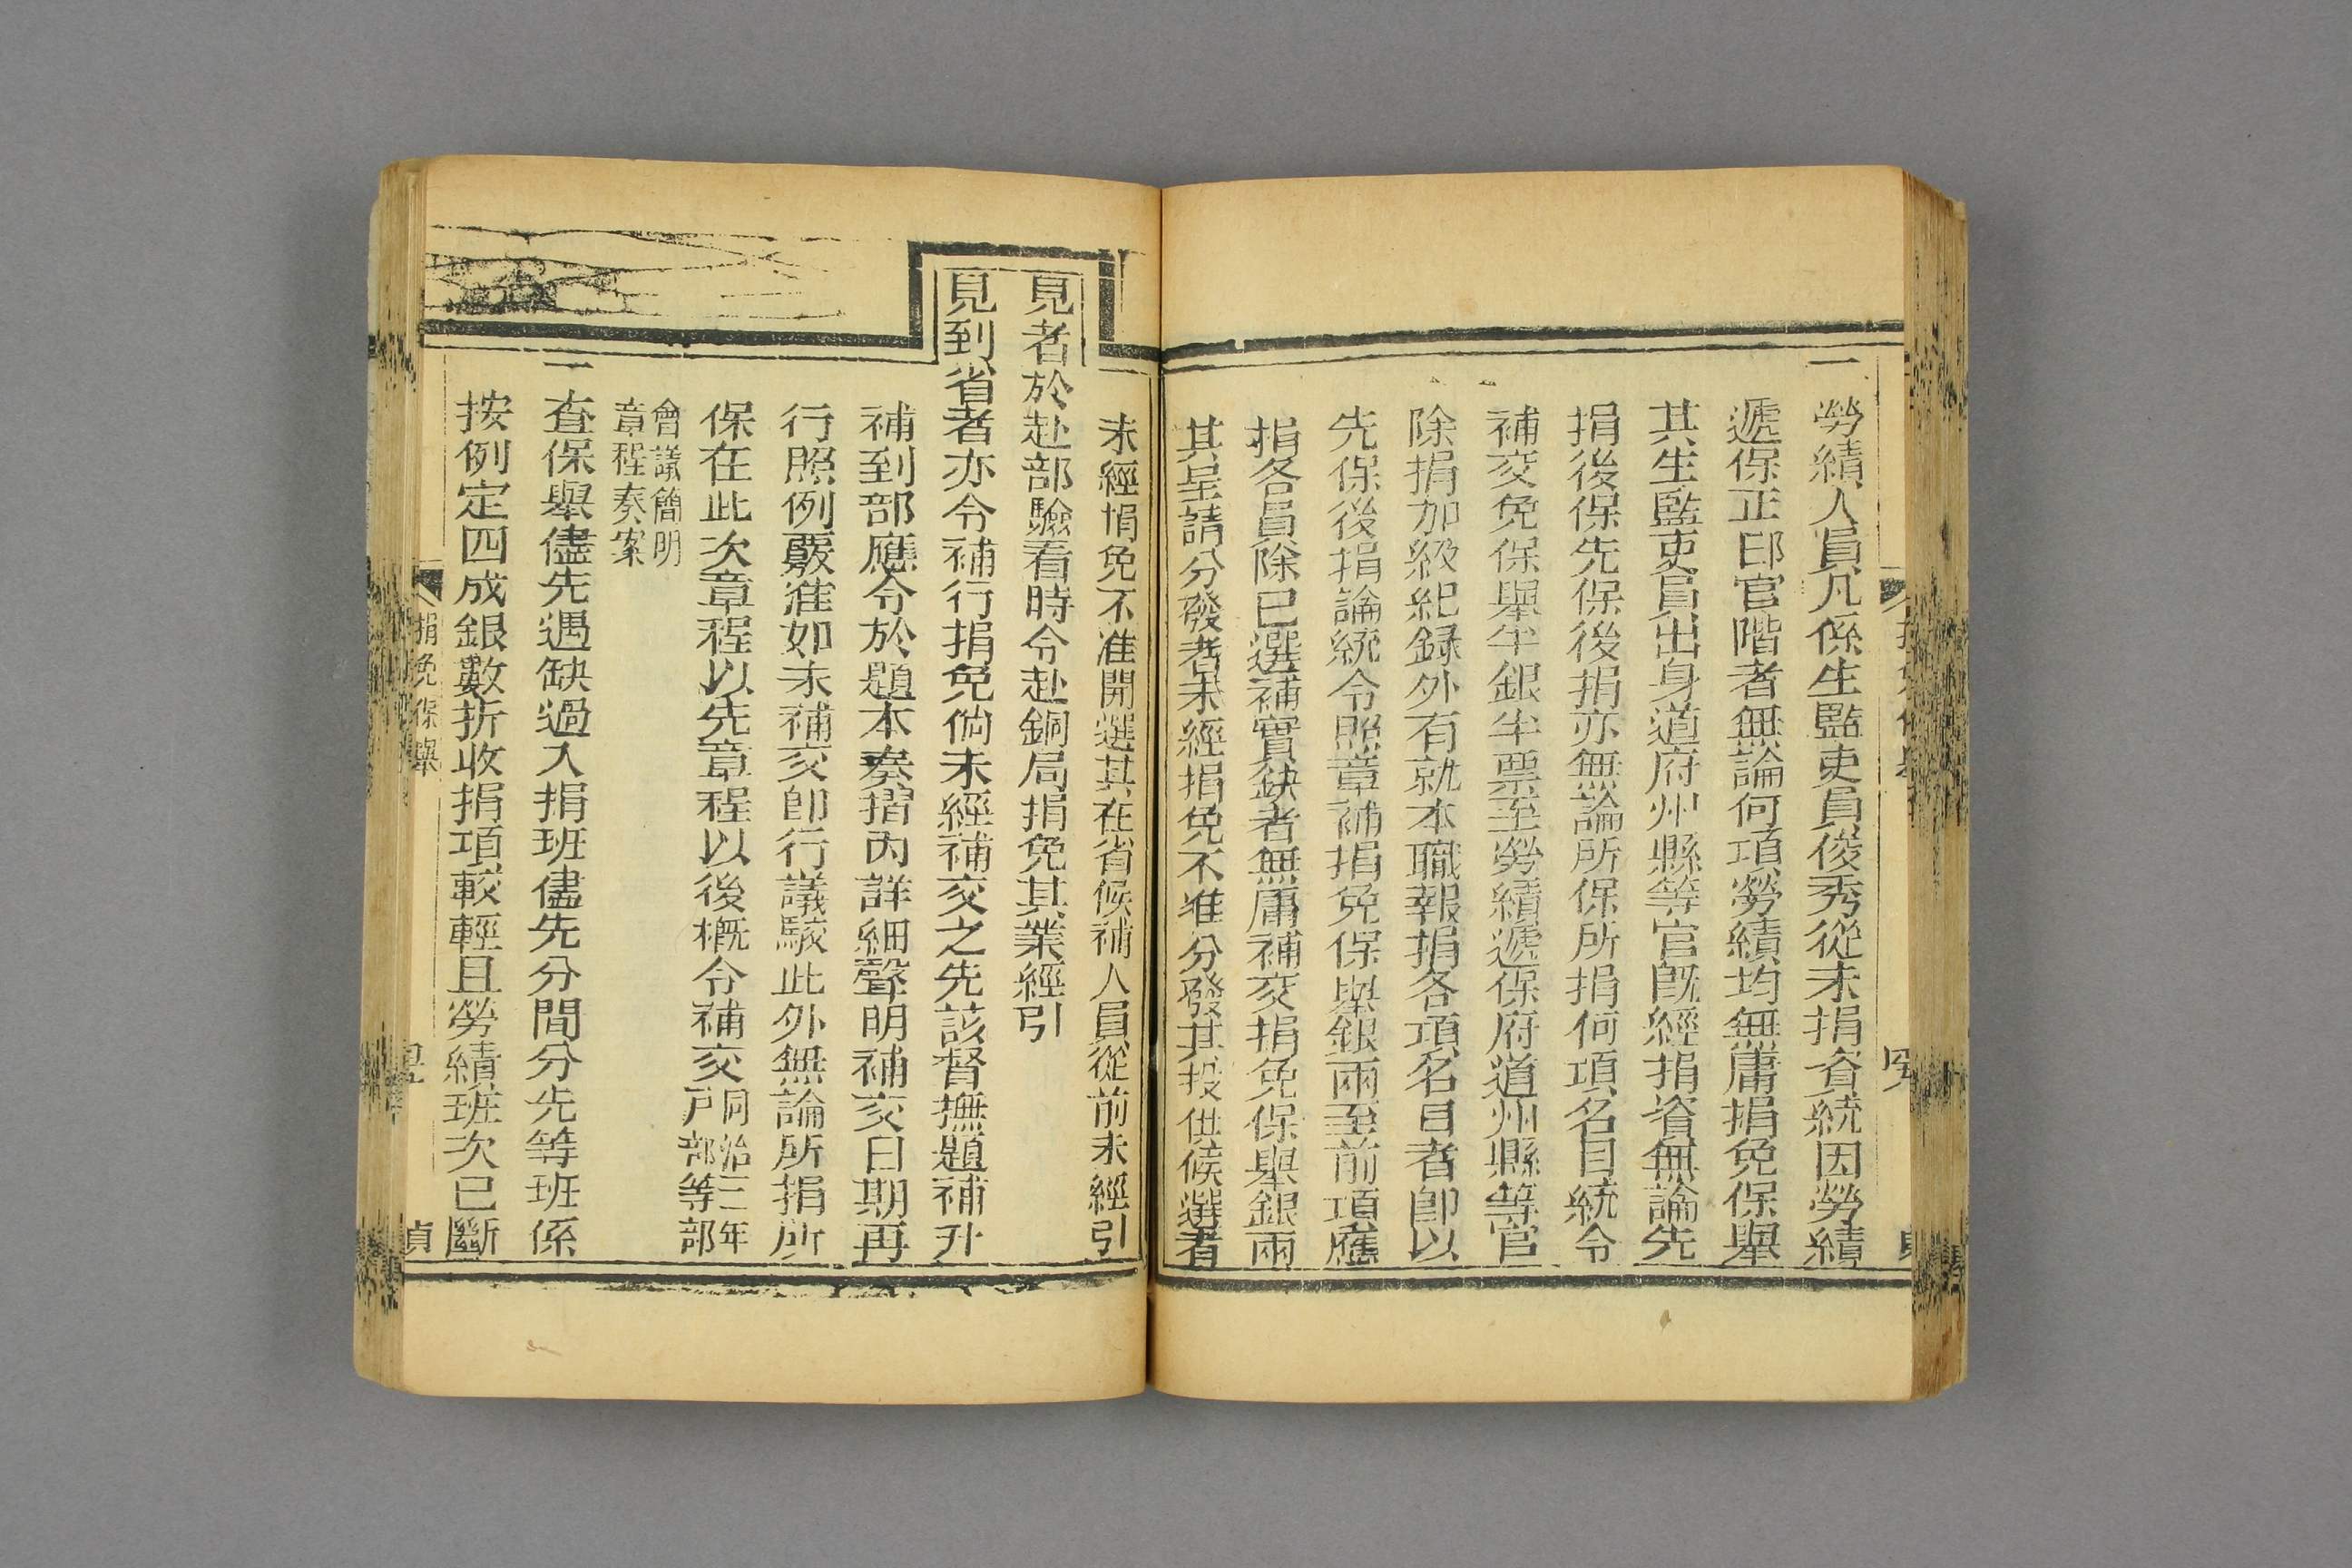 一勞績人員凡係生監吏員俊秀從未捐資統因勞績
遞保正印官階者無論何項勞績均無庸捐免保舉
其生監吏員出身道府州縣等官既經捐資無論先
捐後保先保後捐亦無論所保所捐何項名目統令
補交免保舉半銀半票至勞績遞保府道州縣等官
除捐加級紀録外有就本職報捐各項名目者卽以
先保後捐論統令照章補捐免保舉銀兩至前項應
捐各員除已選補實缺者無庸補交捐免保舉銀兩
其呈請分發者未經捐免不准分發其投供候選者
未經捐免不准開選其在省候補人員從前未經引
見者於赴部驗看時令赴銅局捐免其業經引
見到省者亦令補行捐免倘未經補交之先該督撫題補升
補到部應令於題本奏摺內詳細聲明補交日期再
行照例覈准如未補交卽行議駁此外無論所捐所
保在此次章程以先章程以後概令補交同治三年
戶部等部
會議簡明
章程奏案
一查保舉儘先遇缺過入捐班儘先分間分先等班係
按例定四成銀數折收捐項較輕且勞績班次已斷
捐免保舉
貞